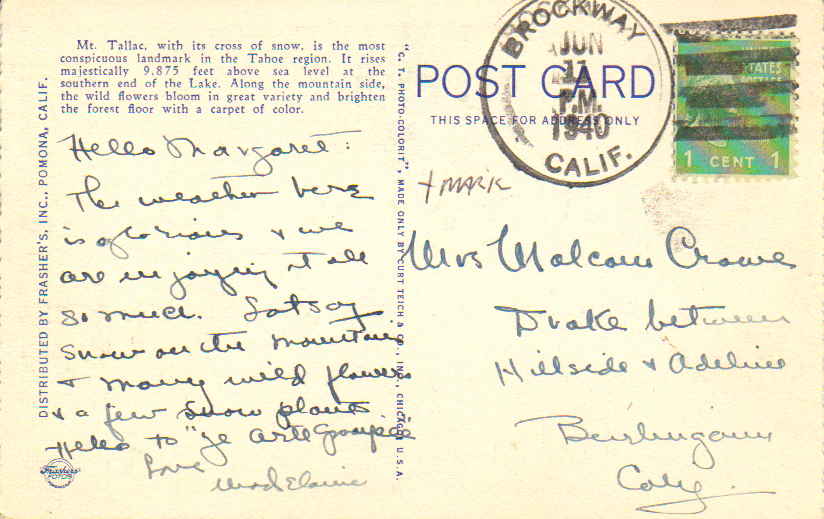 Mt. Tallac, with its cross of snow, is the most
conspicuous landmark in the Tahoe region. It rises
majestically 9,875 feet above sea level at the
southern end of the Lake. Along the mountain side,
the wild flowers bloom in great variety and brighten
the forest floor with a carpet of color.
Hello Margaret:
The weather here
is glorious & we
are enjoying it all
so much. Lots of
snow on the mountains
& many wild flowers
& a few snow plants
Hello to "ye arte
Love
Madelaine
DISTRIBUTED BY FRASHER'S, INC., POMONA, CALIF.
Frashers
FOTOS
"C. T. PHOTO-COLORIT", MADE ONLY BY CURT TEICH & CO., INC., CHICAGO, U.S.A.
POST CARD
THIS SPACE FOR ADDRESS ONLY
BROCKWAY
JUN
11
P.M.
1940
CALIF.
UNITED
STATES
1 CENT 1
+ MARK
Mrs Malcom Crowe
Drake between
Hillside & Adeline
Burlingame
Calif.